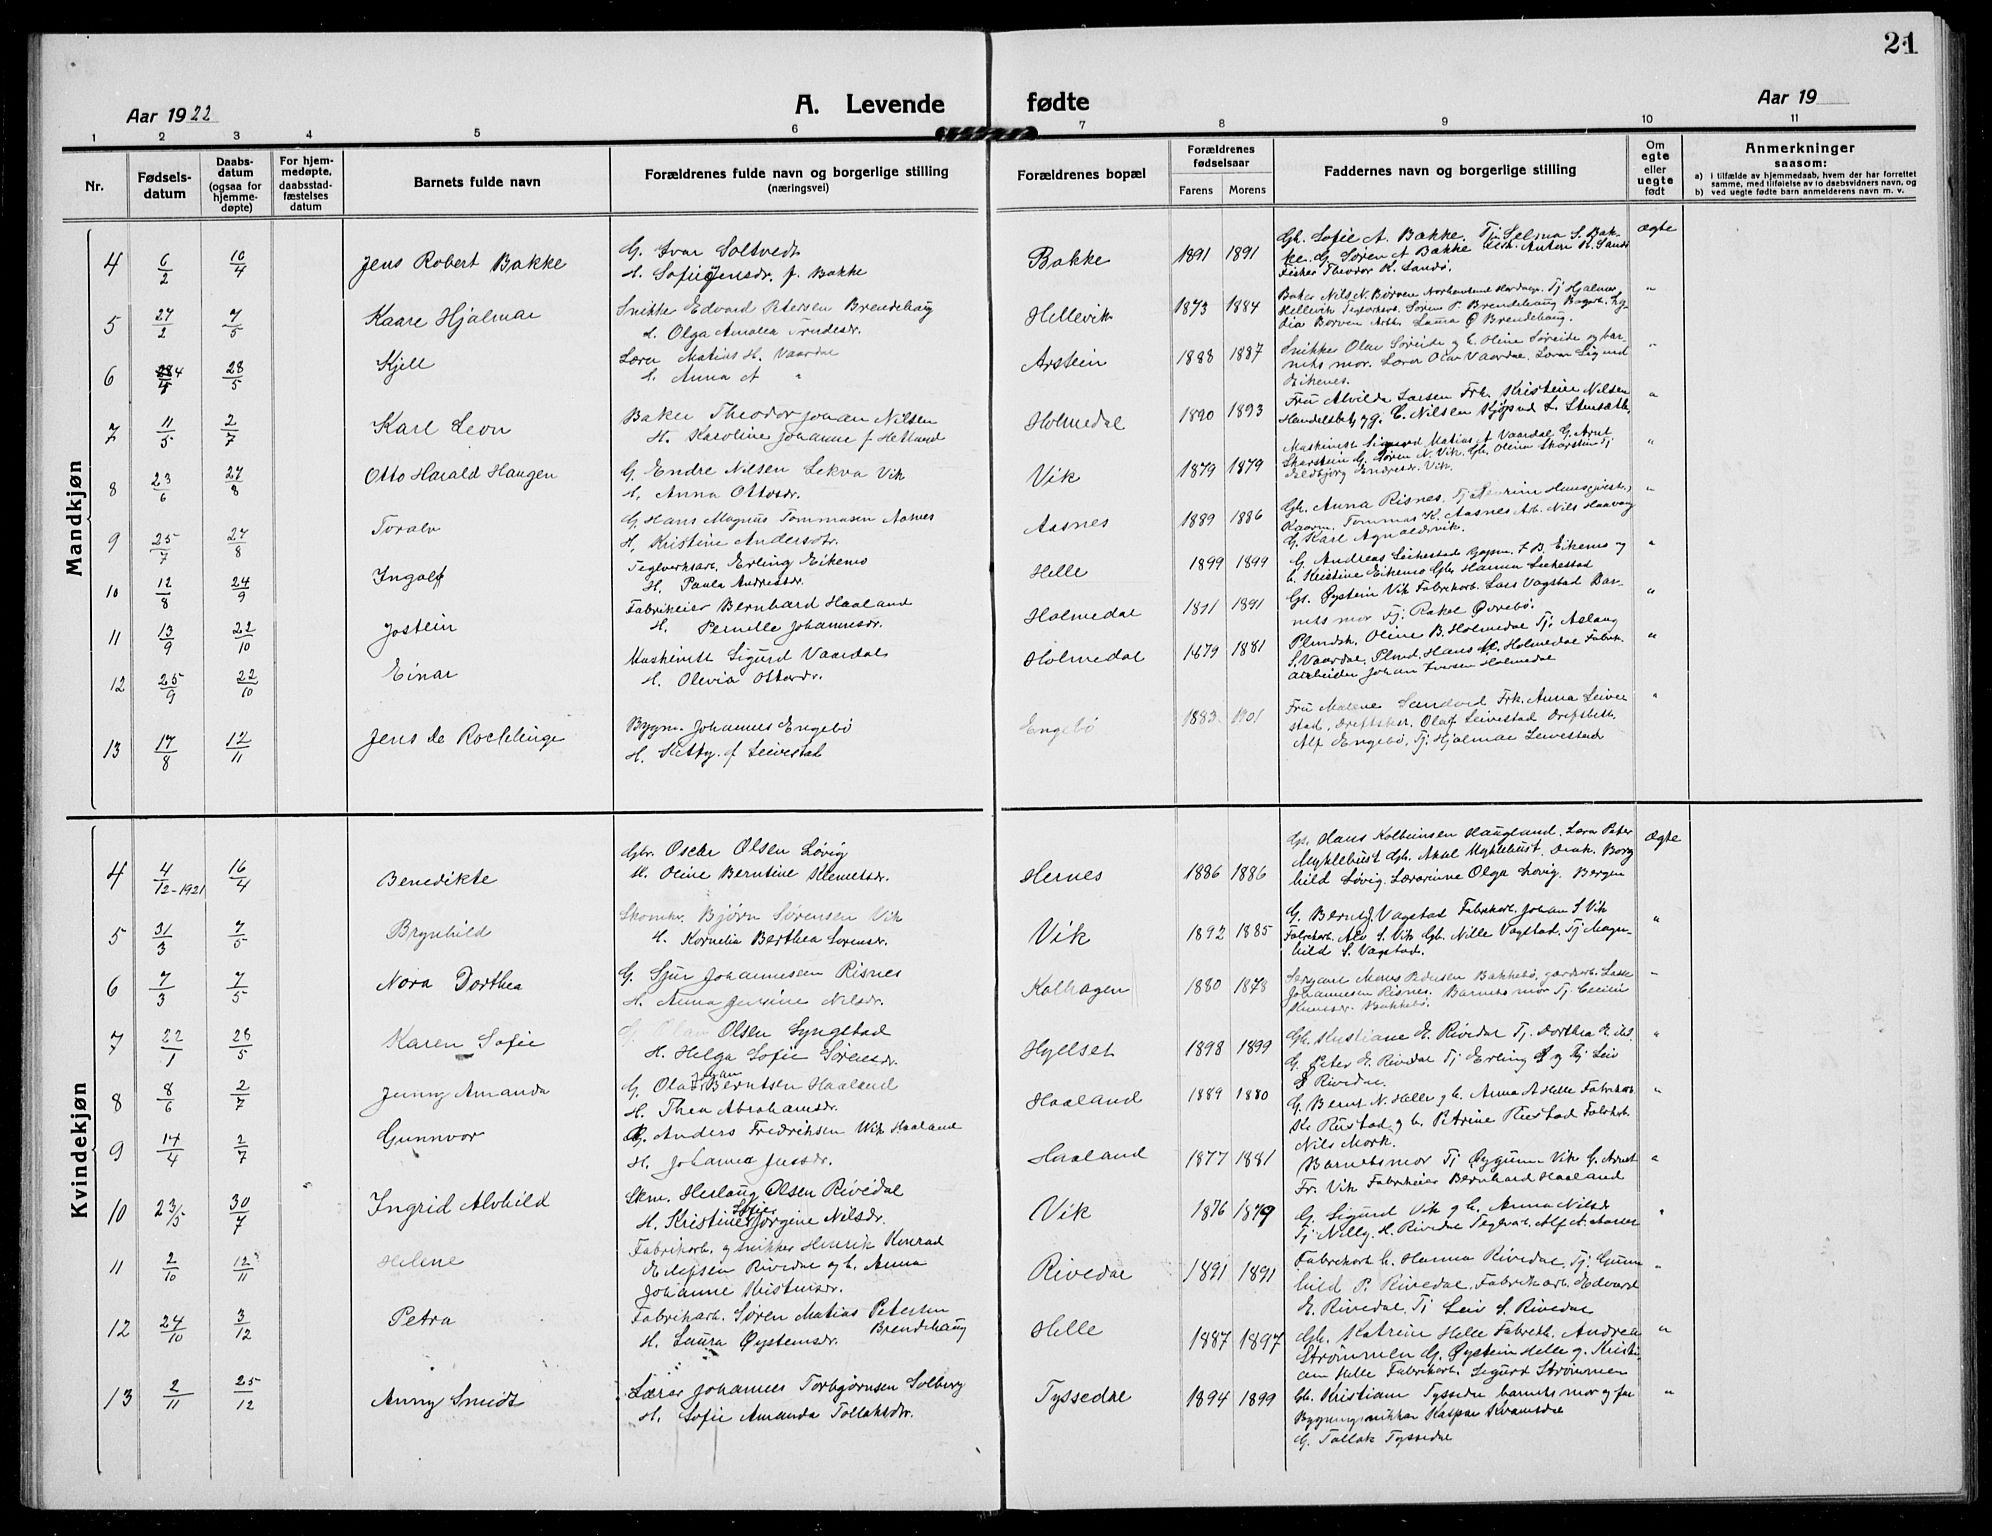 21
Aar 1922
A. Levende fødte
Aar 19
1 2 3 4 5 6 7 8 9 10 11
Nr.
Fødsels-
datum
Daabs-
datum
(ogsaa for
hjemme-
døpte)
For hjem-
medøpte,
daabsstad-
fæstelses
datum
Barnets fulde navn
Forældrenes fulde navn og borgerlige stilling
(næringsvei)
Forældrenes bopæl
Forældrenes
fødselsaar
Farens Morens
Faddernes navn og borgerlige stilling
Om
egte
eller
uegte
født
Anmerkninger
saasom:
a) i tilfælde av hjemmedaab, hvem der har forrettet
samme, med tilføielse av to daabsvidners navn, og
b) ved uegte fødte barn anmelderens navn m. v.
Mandkjøn
4 6/2 16/4 Jens Robert Bakke
G. Ivar Soltvedt
H. Sofie Jensdr. f. Bakke
Bakke 1891 1891
Gh. Sofie A. Bakke. Tj. Selma S. Bak-
ke. G. Søren A Bakke
Fisker Theodor K. Sandø.
Ægte
5 27/2 7/5 Kaare Hjalmar
Snikker Edvard Petersen Brendehaug
H. Olga Amalia
Hellevik 1873 1884
Baker Nils N. Børven Tj Hjalmar
Hellevik Søren P. Brendehaug
Børven Laura Ø Brendehaug.
"
6 28/5 Kjell
Lærer Matias H. Vaardal
H. Anna A "
Arstein 1888 1887
Snikker Olav Søreide og h. Oline Søreide og bar-
nets mor. Lærer Olav Vaardal. Lærer Sigurd
Eikenes.
"
7 11/5 2/7 Karl Leon
Baker Theodor Johan Nilsen
H. Karoline Johanne f Hetland
Holmedal 1890 1893
Fru Alvilda Larsen Frk. Kristine Nilsen
"
8 23/6 27/8 Otto Harald Haugen
G. Endre Nilsen Lekva Vik
H. Anna Ottosdr.
Vik 1879 1879
Maskinist Sigurd Matias A Vaardal G. Arnt
Skarstein G. Søren N. Vik. Gh. Olina Skarstein Tj
Eldbjørg Endresdr. Vik.
"
9 25/7 27/8 Toralv
G. Hans Magnus Tommasen Aasnes
H. Kristine Andersdr.
Aasnes 1889 1886
Gh. Anna Risnes. Tj
Kaarm. Tommas K. Aasnes Arb. Nils Haavang
G. Karl
"
10 12/8 24/9 Ingolf
Teglverksarb. Erling Eikemo
H. Paula Andreasdr.
Helle 1899 1899
G. Andreas Leikestad
h. Kristine Eikemo Gh. Hanna Leikestad
"
11 13/9 22/10 Jostein
Fabrikeier Bernhard Haaland
H. Pernille Johannesdr.
Holmedal 1891 1891
Gh. Øystein Vik Fabrikarb. Lars Vagstad Bar-
nets mor Tj. Rakel Øvrebø.
"
12 25/9 22/10 Einar
Maskinist Sigurd Vaardal
H. Olevia Ottosdr.
Holmedal 1879 1881
Plmdsk. Oline B. Holmedal Tj. Aslaug
S. Vaardal. Plmd. Hans M. Holmedal Fabrik-
arbeider Johan Iversen Holmedal
"
13 17/8 12/11 Jens de Rochlinge
Bygm. Johannes Engebø
H. Hetty f Leivestad
Engebø 1883 1901
Fru Malene Sandvik Frk. Anna Leive
stad, Olaf Leivestad
Alf Engebø, Tj. Hjalmar Leivestad
"
Kvindekjøn
4 4/12-1921 16/4 Benedikte
Gbr. Oscar Olsen Løvig
H. Oline Berntine Klemetsdr.
Hernes 1886 1886
Hans Kolbeinsen Haugland. Lærer Peter
Myklebust Gh. Aksel Myklebust. Borg
hild Løvig. Lærerinne Olga Løvig. Bergen
Ægte
5 31/3 7/5 Brynhild
Skomkr. Bjørn Sørensen Vik
H. Kornelia Berthea Sørensdr.
Vik 1892 1885
G. Bernt J. Vagstad Fabrikarb. Johan S Vik
Fabrikarb. Alv S. Vik Gh. Nille Vagstad. Tj Magn-
hild S. Vagstad.
"
6 7/3 7/5 Nora Dorthea
G. Sjur Johannessen Risnes
H. Anna Jensine Nilsdr.
Kolhagen 1880 1878
Sersjant Mons Pedersen Bakkebø, gardarb. Lasse
Johannesen Risnes. Barnets mor Tj Cecilie
Bakkebø.
"
7 22/1 28/5 Karen Sofie
G. Olav Olsen Lyngstad
H. Helga Sofie Sørensdr.
Hyllset 1898 1899
Gh. Kristiane E. Rivedal Tj. Dorthea
G. Peter E. Rivedal Tj Erling S og Tj Leiv
S Rivedal.
"
8 8/6 2/7 Jenny Amanda
G. Olaf Johan Berntsen Haaland
H. Thea Abrahamsdr.
Haaland 1889 1880
G. Bernt N. Helle og h. Anna A Helle Fabrikarb
Kr Rustad og h. Petrine Rustad Fabrikarb
Nils Mork.
"
9 14/4 2/7 Gunnvor
G. Anders Fredriksen Vik Haaland
H. Johanna Jensdr.
Haaland 1877 1881
Barnetsmor Tj Øygunn Vik G. Arnet
Fr. Vik Fabrikeier Bernhard Haaland
"
10 23/5 30/7 Ingrid Alvhild
Skm. Herlaug Olsen Rivedal
H. Kristine Sofie Jørgine Nilsdr.
Vik 1876 1879
G. Sigurd Vik og h. Anna Nilsdr
Tj Nilly H. Rivedal
"
11 2/10 12/11 Helene
Fabrikarb. og snikker Henrik Konrad
Rivedal og h. Anna
Johanne Kristensdr.
Rivedal 1891 1891
Fabrikarb h. Hanna Rivedal, Tj. Gunn
hild P. Rivedal. Fabrikarb. Edvard
E. Rivedal. Tj Leiv S. Rivedal
"
12 24/10 3/12 Petra
Fabrikarb. Søren Matias Petersen
Brendehaug
H. Laura Øystensdr.
Helle 1887 1897
Gh. Katrine Helle Andrea
Strømmen G. Øystein Helle og Kristi-
an Helle Fabrikarb. Sigurd Strømmen
"
13 2/11 25/12 Anny Smidt
Lærer Johannes Torbjørnsen Solberg
H. Sofie Amanda Tollaksdr.
Tyssedal 1894 1899
Gh. Kristiane Tyssedal barnets mor og far
Bygningssnikker Kaspar Kvamsdal
G. Tollak Tyssedal
"